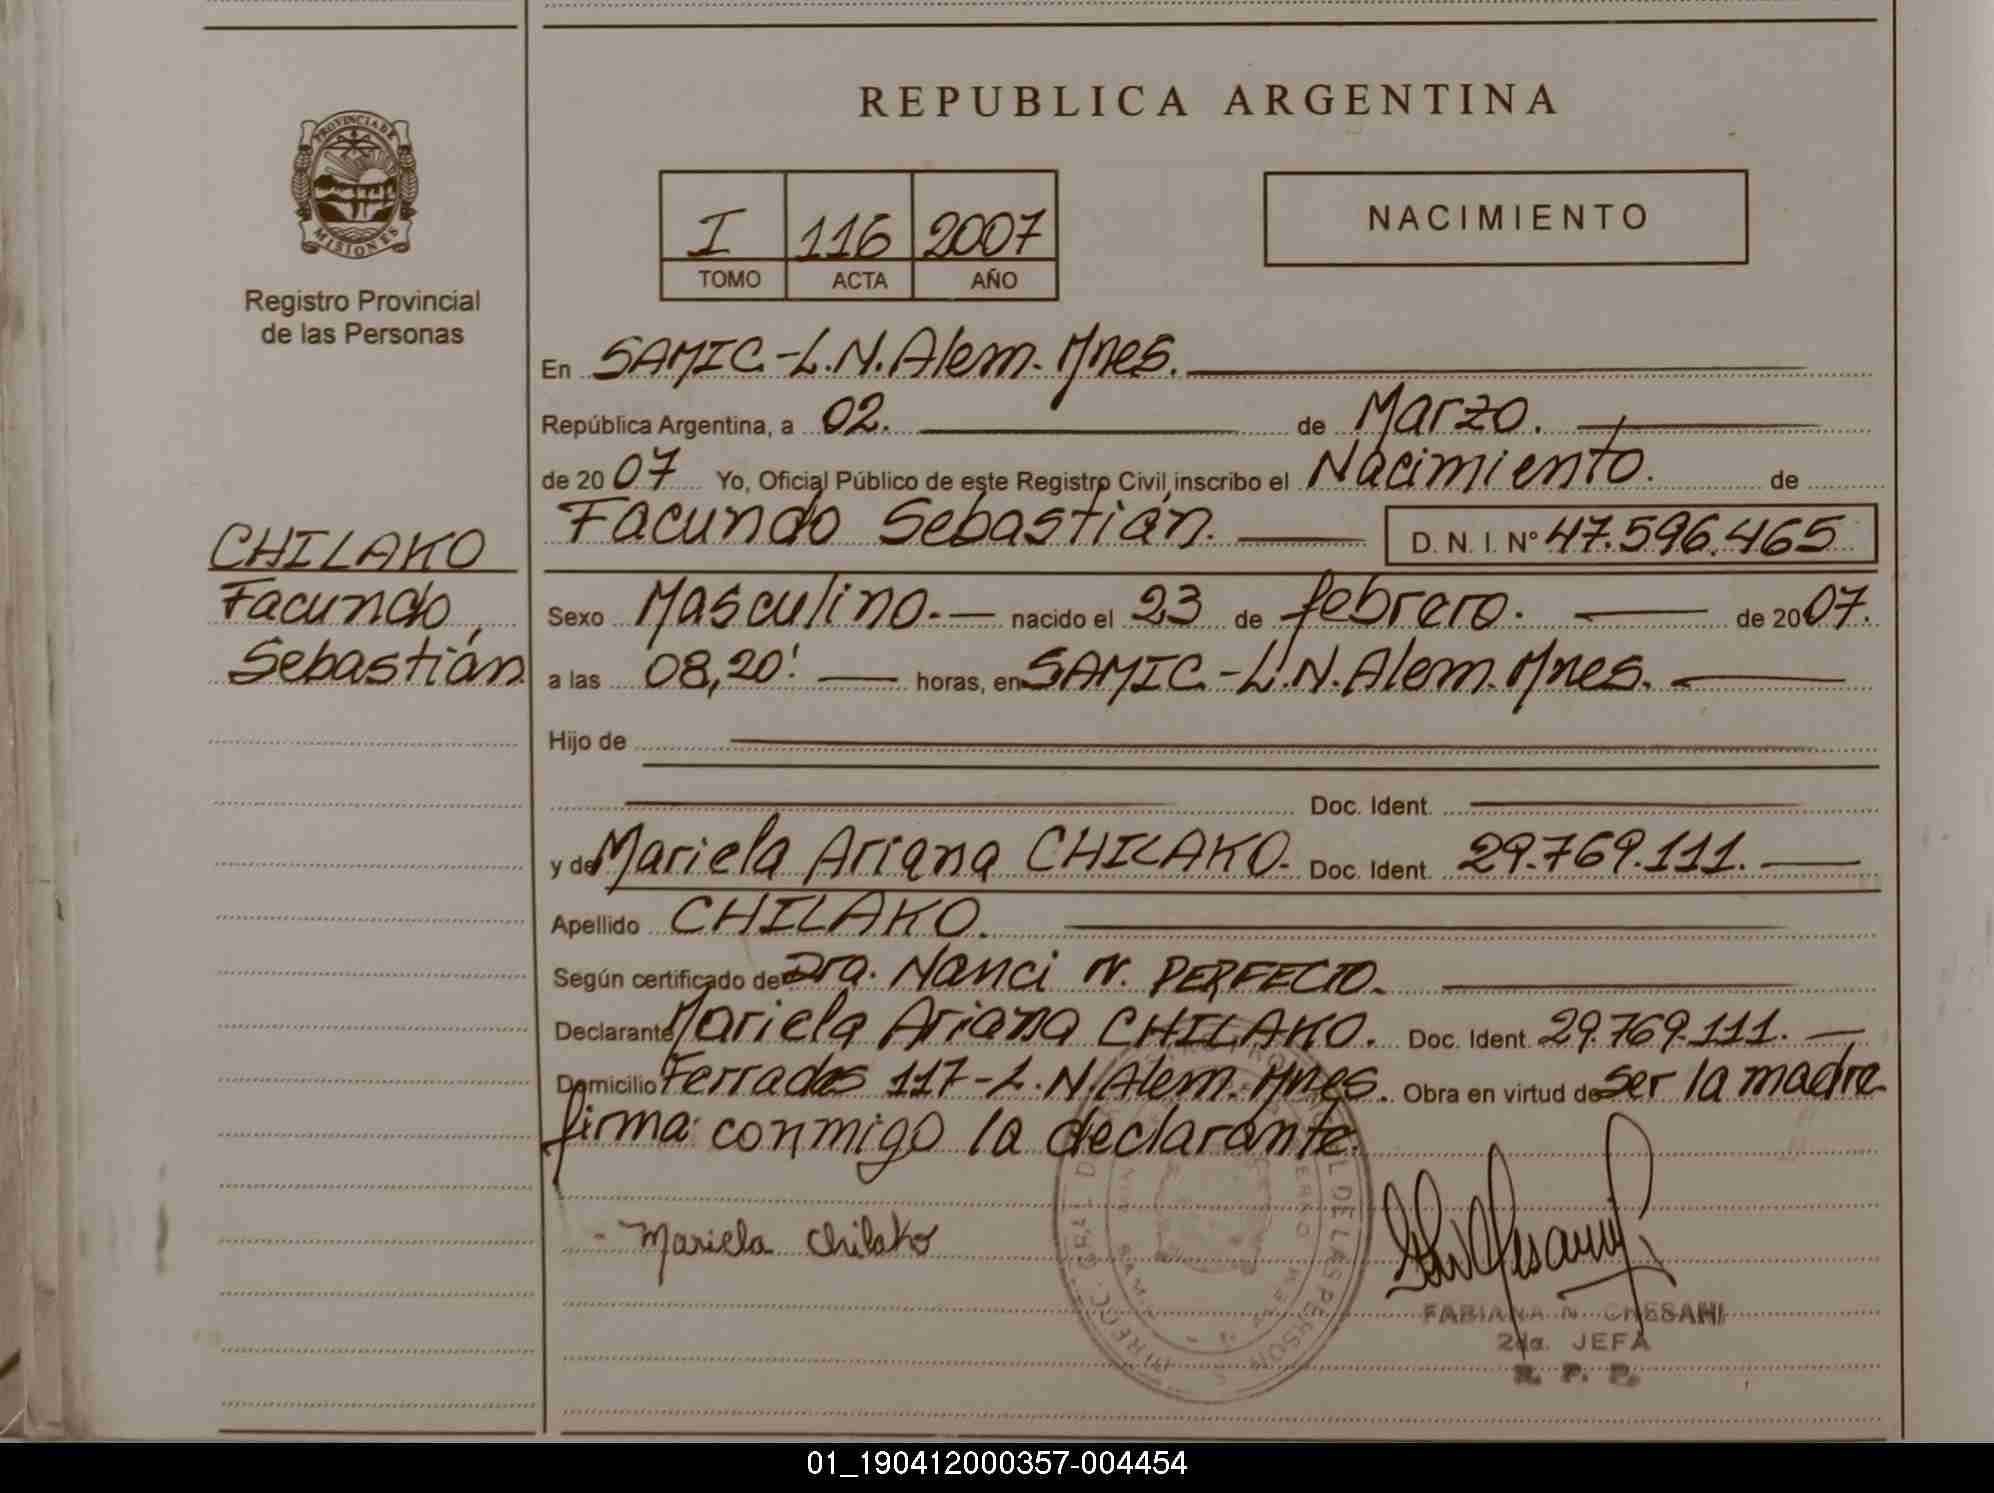 PROVINCIA DE
MISIONES
Registro Provincial
de las Personas
CHILAKO
Facundo
Sebastián
REPUBLICA ARGENTINA
I 116 2007
TOMO ACTA AÑO
NACIMIENTO
En SAMIC.-L.N.Alem.Mnes.
República Argentina, a 02. de Marzo.
de 2007 Yo, Oficial Público de este Registro Civil inscribo el Nacimiento. de
Facundo Sebastián. D. N. I. N° 47.596.465
Sexo Masculino. nacido el 23 de febrero. de 2007.
a las 08,20' horas, en SAMIC.-L.N.Alem.Mnes.
Hijo de
Doc. Ident.
y de Mariela Ariana CHILAKO. Doc. Ident. 29.769.111.
Apellido CHILAKO.
Según certificado de Dra. Nanci N. PERFECTO.
Declarante Mariela Ariana CHILAKO. Doc. Ident. 29.769.111.
Domicilio Ferrades 117-L.N.Alem.Mnes. Obra en virtud de ser la madre
firma conmigo la declarante.
- Mariela Chilako
FABIANA N. CHESANI
2da. JEFA
R. P. P.
01_190412000357-004454